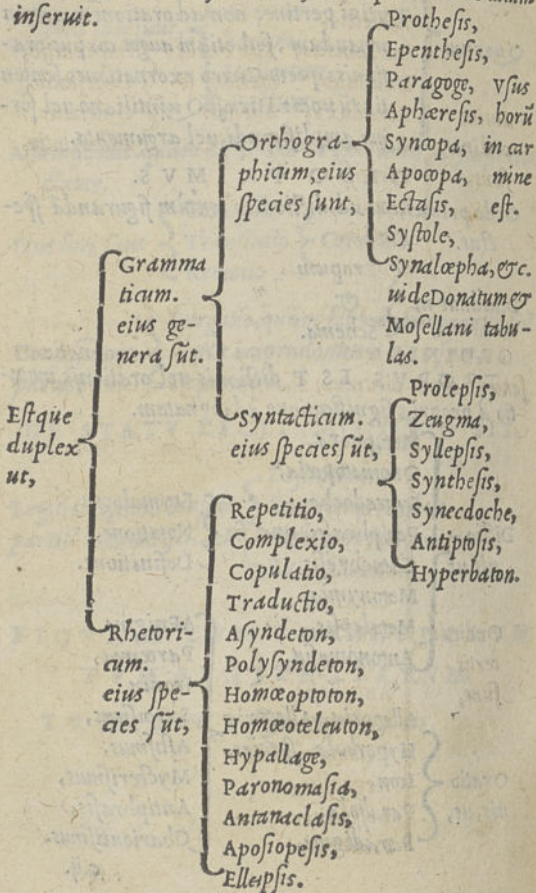 inseruit.
Estque
duplex
ut,
Gramma
ticum.
eius ge-
nera sũt.
Orthogra-
phicum, eius
species sunt,
Prothesis,
Epenthesis,
Paragoge, vsus
Aphæresis, horũ
Syncopa, in car
Apocopa, mine
Ectasis, est.
Systole,
Synalœpha, &c.
uide Donatum &
Mosellani tabu-
las.
Syntacticum.
eius species sũt,
Prolepsis,
Zeugma,
Syllepsis,
Synthesis,
Synecdoche,
Antiptosis,
Hyperbaton.
Rhetori-
cum.
eius spe-
cies sũt,
Repetitio,
Complexio,
Copulatio,
Traductio,
Asyndeton,
Polysyndeton,
Homœoptoton,
Homœoteleuton,
Hypallage,
Paronomasia,
Antanaclasis,
Aposiopesis,
Ellepsis.